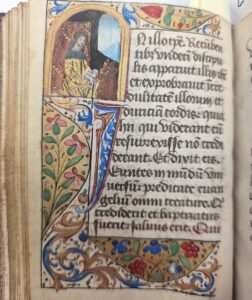 N illo tꝑe. Recūbē
tibꝰ undecim discipu
lis apparuit illis ihs
et exprobravit incre
dulitatē illorum et
duritiam cordis. quia
hiis qui viderant eum
resurrexisse nō credi
derant. Et dixit eis.
Euntes in mūdū uni
versū predicate evan
geliū omni creature. Qui
crediderit et baptizatus
fuerit: salvus erit. Qui